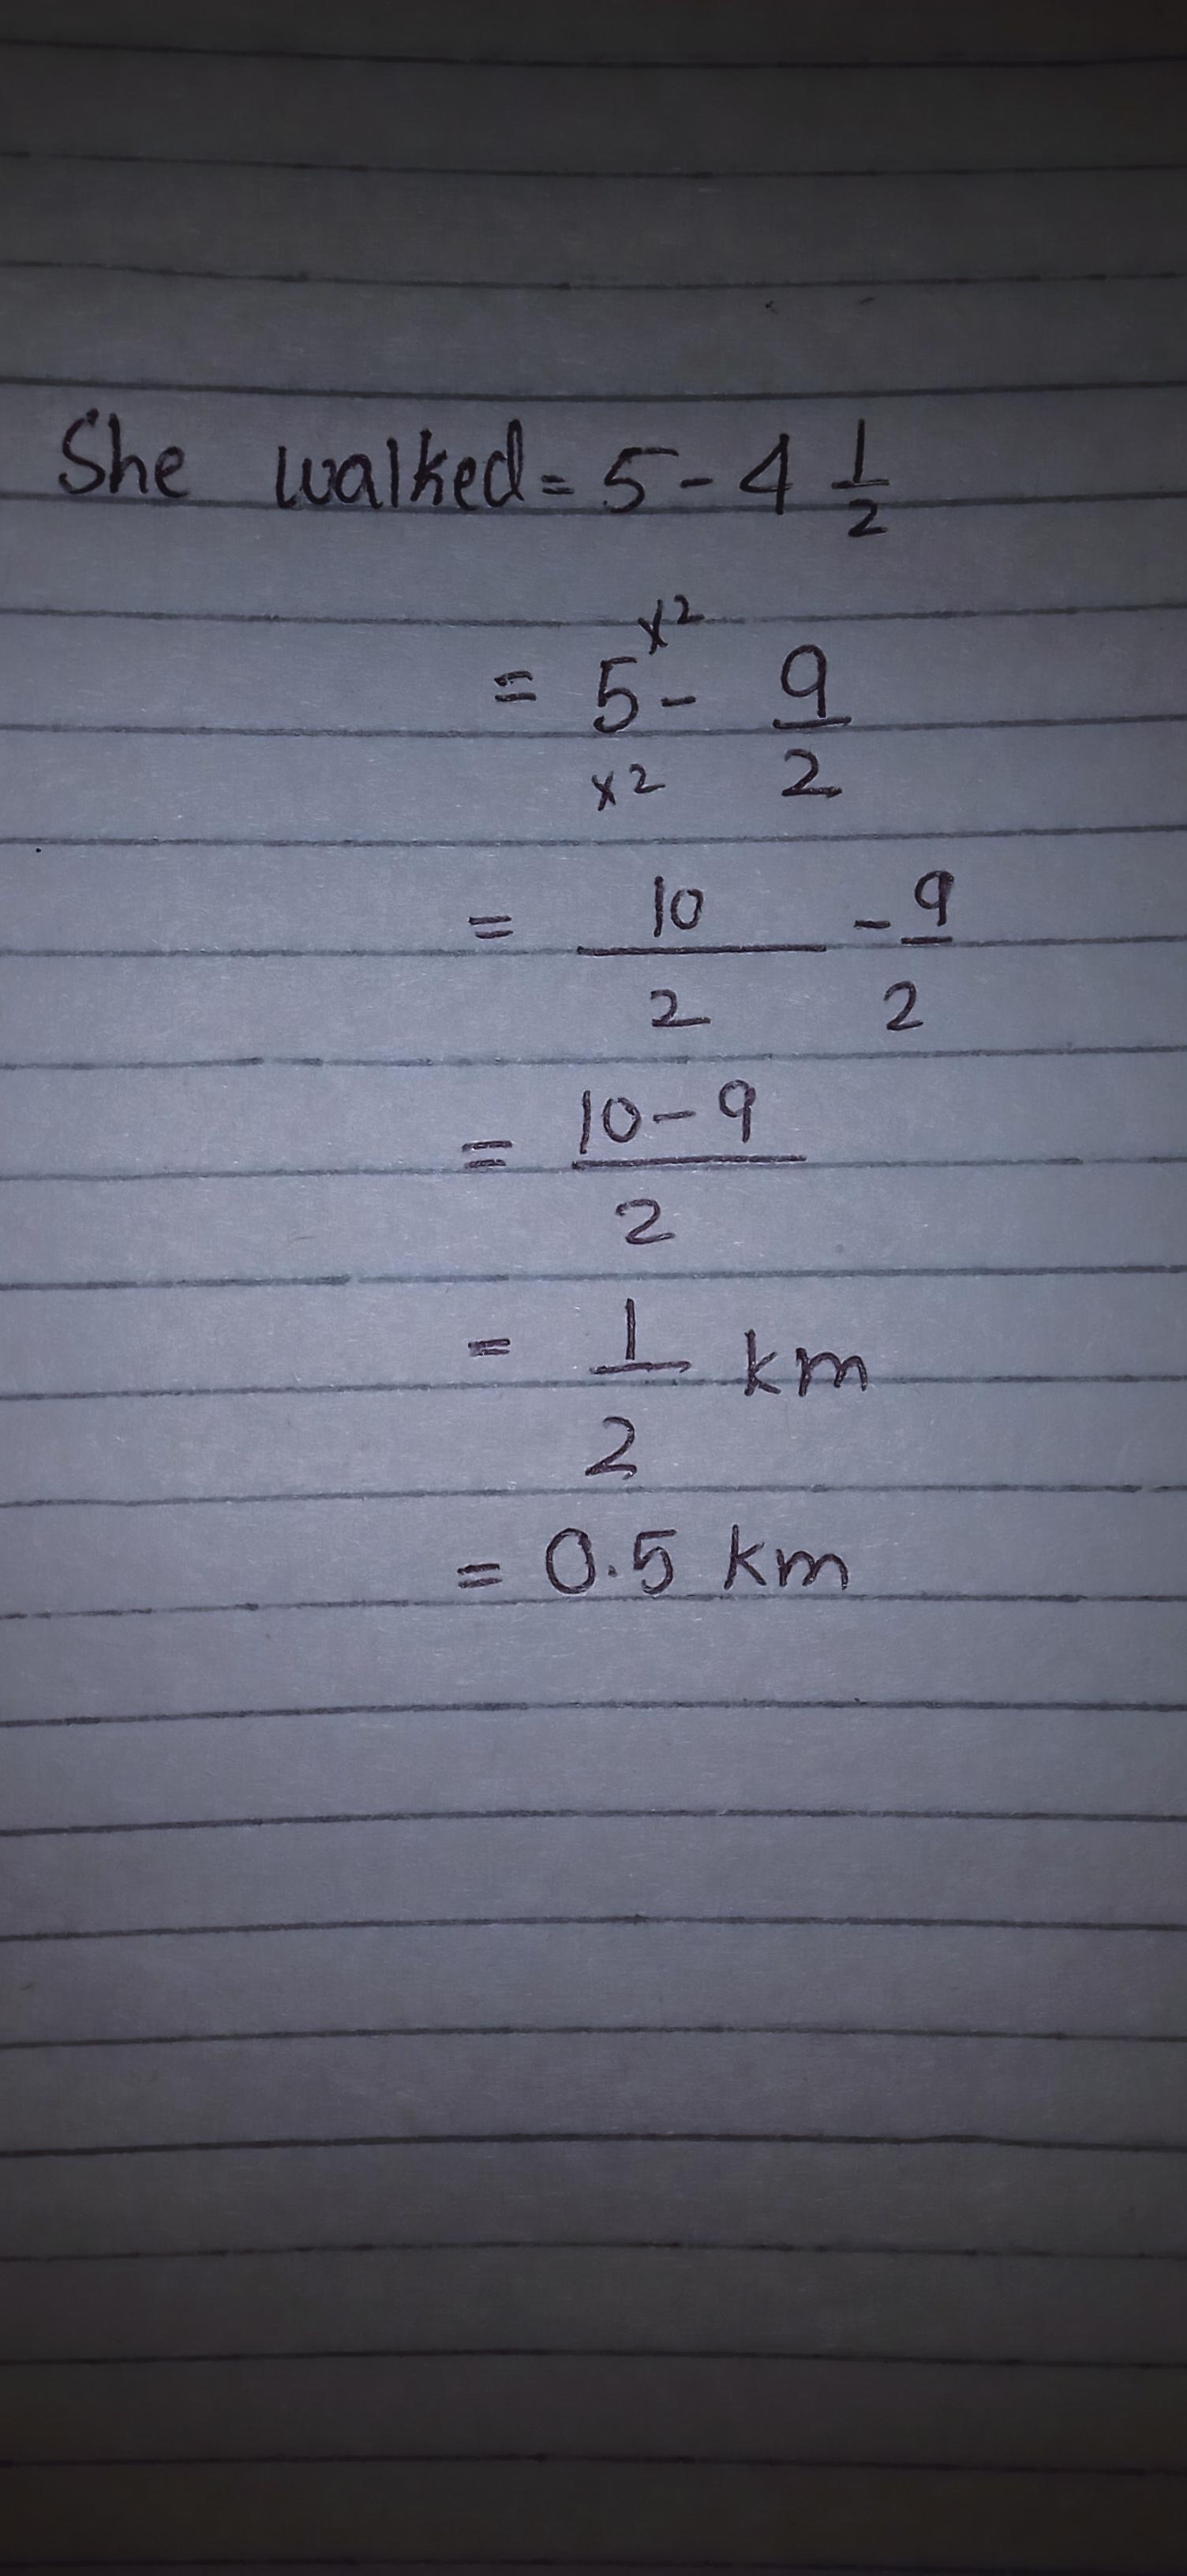 She walked = 5 - 4 1/2
x2
= 5 - 9/2
x2
= 10/2 - 9/2
= 10 - 9/2
= 1/2 km
= 0.5 km